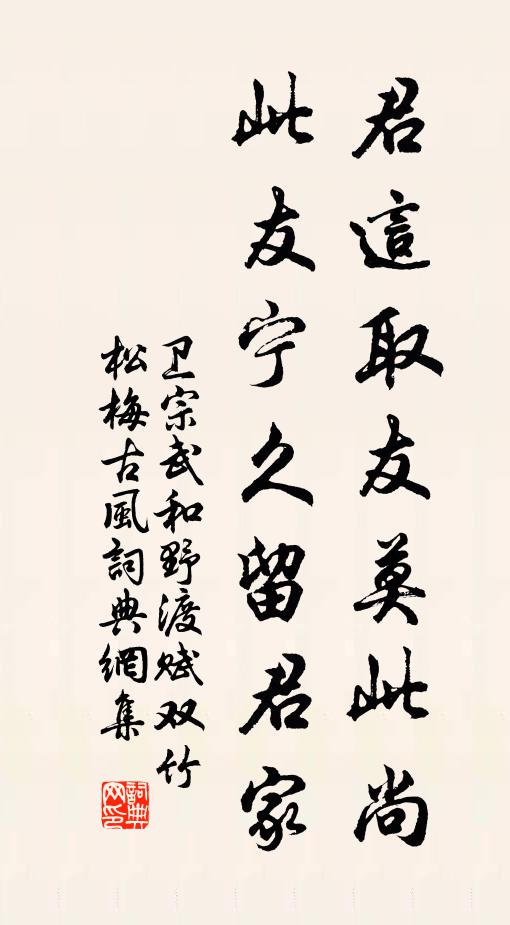 君這取友莫此尚
此友宁久留君家
卫宗武和野渡赋双竹
松梅古風詞典網集
詞典网印